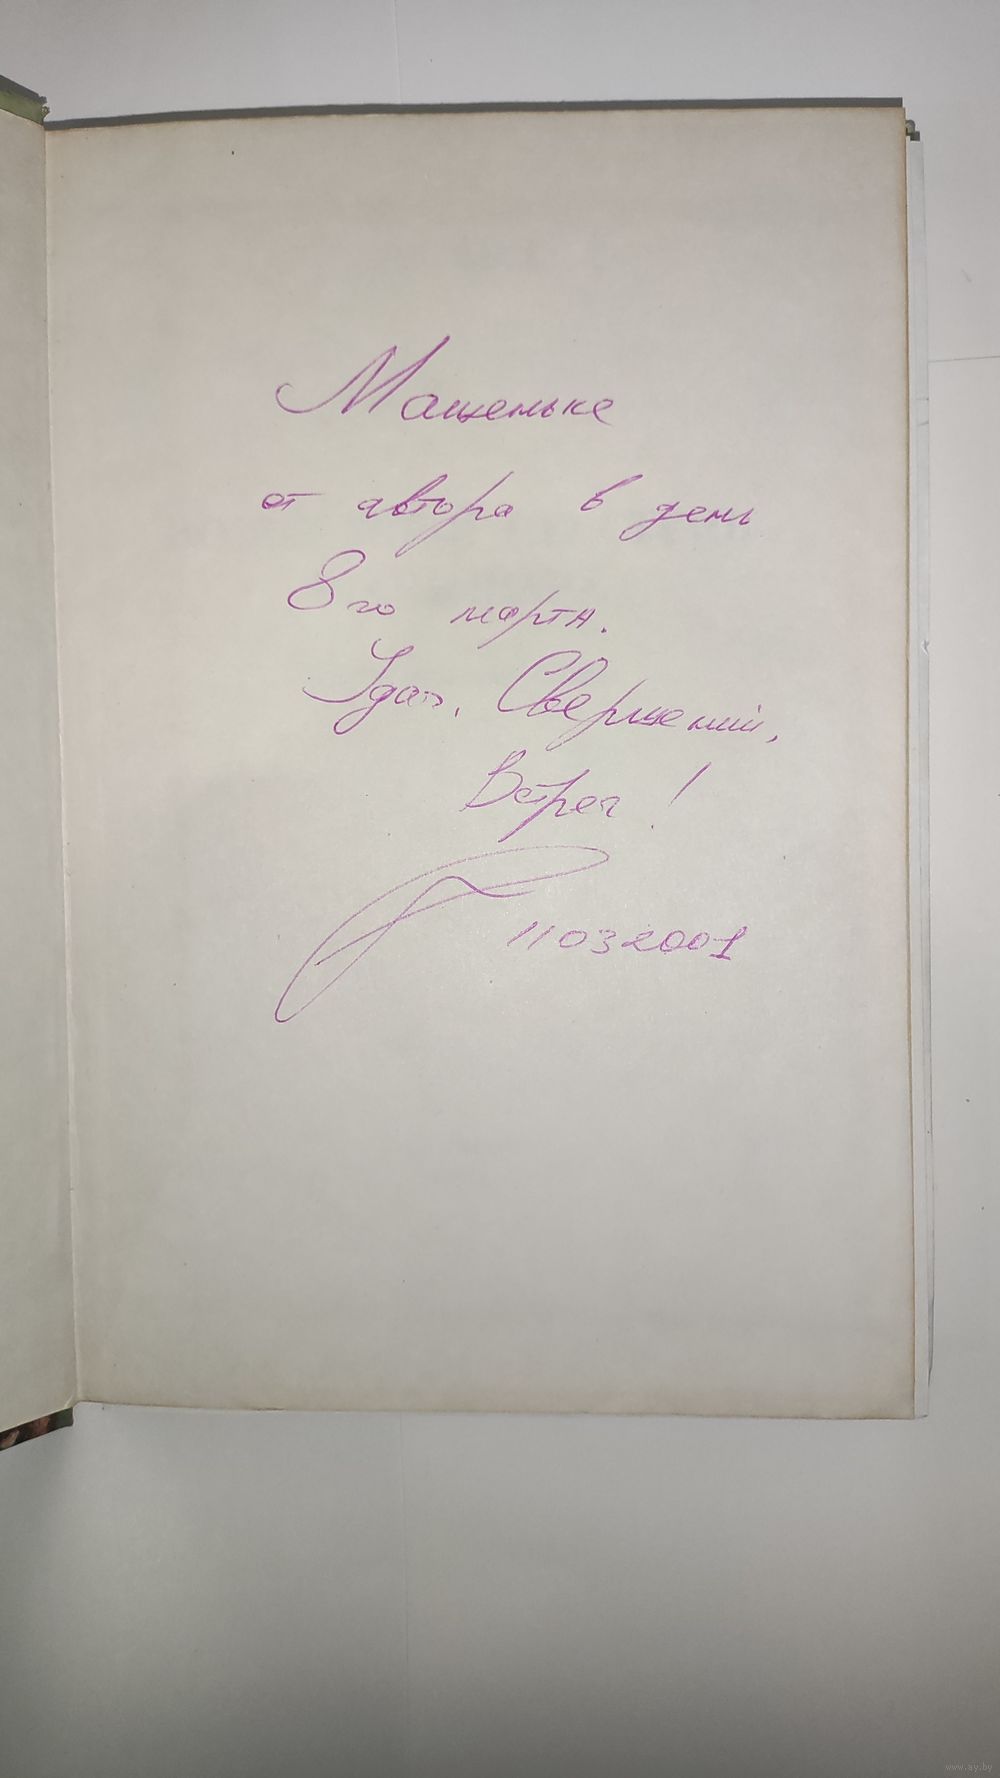 Машеньке
от автора в день
8го марта.
Удач, Свершений,
Встреч!
11032001
www.ay.by